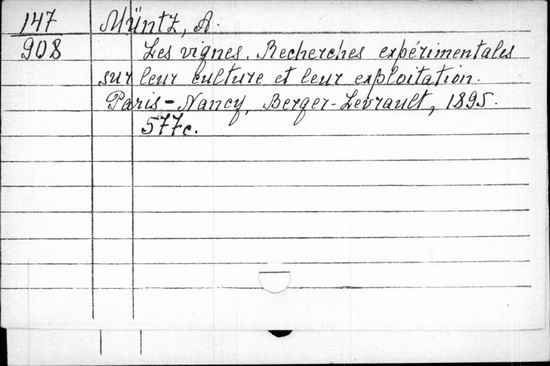 147 Müntz, A.
908 Les vignes. Recherches expérimentales
sur leur culture et leur exploitation.
Paris-Nancy, Berger-Levrault, 1895.
577c.